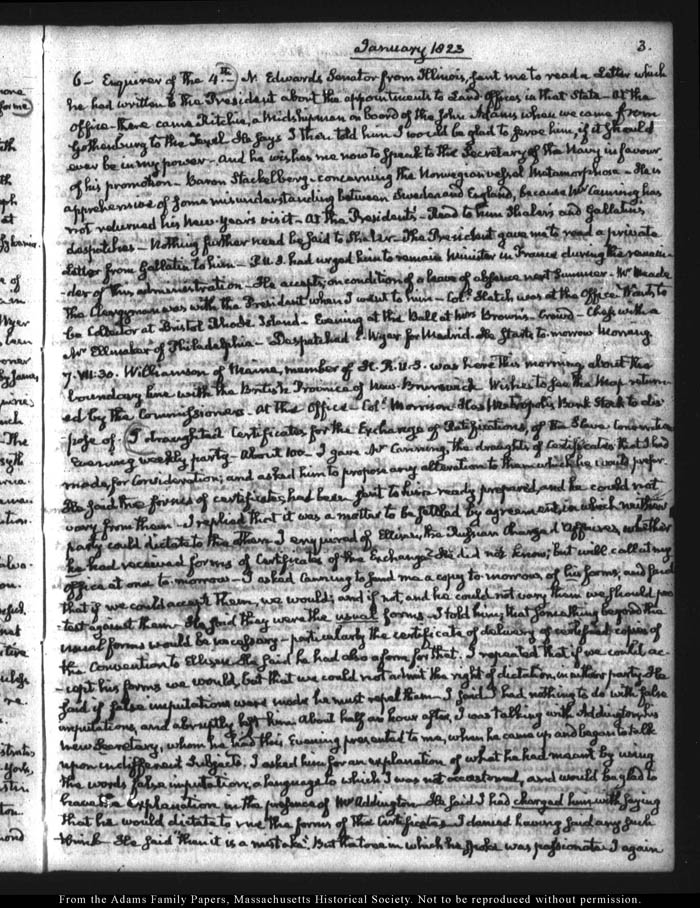 January 1823
3.
6- Enquirer of the 4.th- N. Edwards Senator from Illinois, sent me to read a Letter which
he had written to the President about the appointments to Land Offices in that State- At the
Office- there came Ritchie, a Midshipman on board of the John Adams when we came from
Gothenburg to the Texel. He says I then told him I would be glad to serve him, if it should
ever be in my power- and he wishes me now to speak to the Secretary of the Navy in favour
of his promotion- Baron Stackelberg- concerning the Norwegian vessel Metamorphose- He is
apprehensive of some misunderstanding between Sweden and England, because Mr Canning has
not returned his New-Years visit- At the Presidents- Read to him Thaler's and Gallatin's
despatches- Nothing further need be said to Thaler- The President gave me to read a private
Letter from Gallatin to him- P.U.S. had urged him to remain Minister in France during the remain-
-der of this administration- He accepts, on condition of a leave of absence next Summer- Mr Meade
the Clergyman was with the President when I went to him- Coll. Hatch was at the Office Wants to
be Collector at Bristol Rhode Island- Evening at the Ball at Mrs Brown's- Crowd- Chess with a
Mr Ellmaker of Philadelphia- Despatched E. Wyer for Madrid. He starts to-morrow Morning
7. VII:30. Williamson of Maine, member of H.R.U.S. was here this morning about the
boundary line with the British Province of New Brunswick Wishes to see the Map return-
ed by the Commissioners- At the Office- Coll. Morrison Has Metropolis Bank Stock to dis
pose of. I draughted Certificates for the Exchange of Ratifications, of the Slave Convention
Evening weekly party- About 100- I gave Mr Canning, the draughts of Certificates that I had
made, for Consideration; and asked him to propose any alteration to them which he would prefer.
He said the forms of certificates, had been sent to him ready prepared, and he could not
vary from them- I replied that it was a matter to be settled by agreement, in which neither
party could dictate to the other- I enquired of Ellisen, the Russian Chargé d'Affaires, whether
he had received forms of Certificates of the Exchange? He did not know; but will call at my
Office at one to-morrow- I asked Canning to send me a copy to-morrow, of his forms, and said
that if we could accept them, we would; and if not, and he could not vary them we should pro
-test against them- He said they were the usual forms- I told him, that something beyond the
usual forms would be necessary- particularly the certificate of delivery of certified copies of
the Convention to Ellisen He said he had also a form for that. I repeated that if we could ac-
-cept his forms we would, but that we could not admit the right of dictation, in either party. He
said if false imputations were made he must repel them- I said I had nothing to do with false
imputations, and abruptly left him. About half an hour after, I was talking with Addington, his
new Secretary, whom he had this Evening presented to me, when he came up and began to talk
upon indifferent subjects. I asked him for an explanation of what he had meant by using
the words false imputation, a language to which I was not accustomed, and would be glad to
have the explanation in the presence of Mr Addington- He said I had charged him with saying
that he would dictate to me the forms of the Certificates- I denied having said any such
thing- He said "then it is a mistake." But the tone in which he spoke was passionate- I again
From the Adams Family Papers, Massachusetts Historical Society. Not to be reproduced without permission.